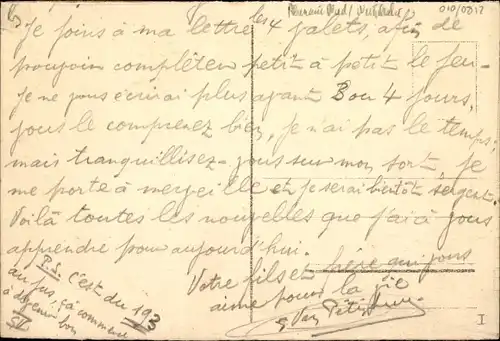 5)
010/0817
Je joins à ma lettre les 4 jalets, afin de
pouvoir compléter petit à petit le jeu.
Je ne vous écrirai plus avant 3 ou 4 jours,
vous le comprenez bien, je n'ai pas le temps;
mais tranquillisez-vous sur mon sort, je
me porte à merveille et je serai bientôt sergent.
Voilà toutes les nouvelles que j'ai à vous
apprendre pour aujourd'hui.
Votre fils et frère qui vous
aime pour la vie
P.S. c'est du 193
au jus, ça commence
à devenir bon
I